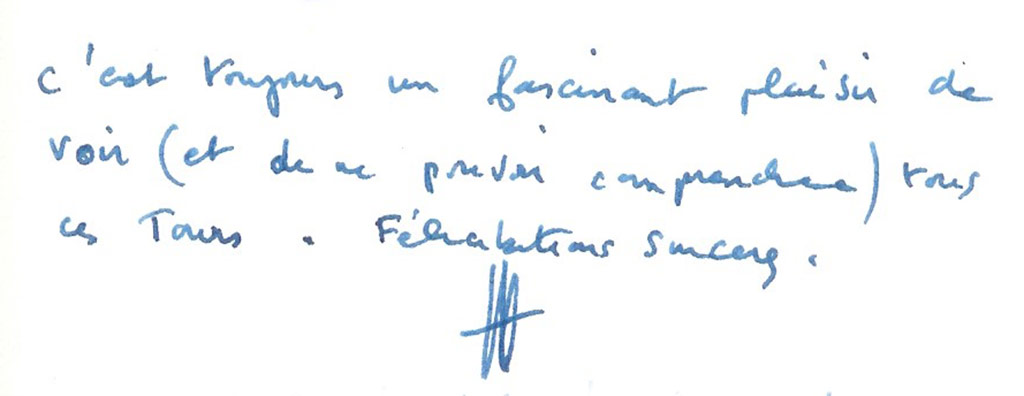 c'est toujours un fascinant plaisir de
voir (et de ne pouvoir comprendre) tous
ces Tours. Félicitations sincères.